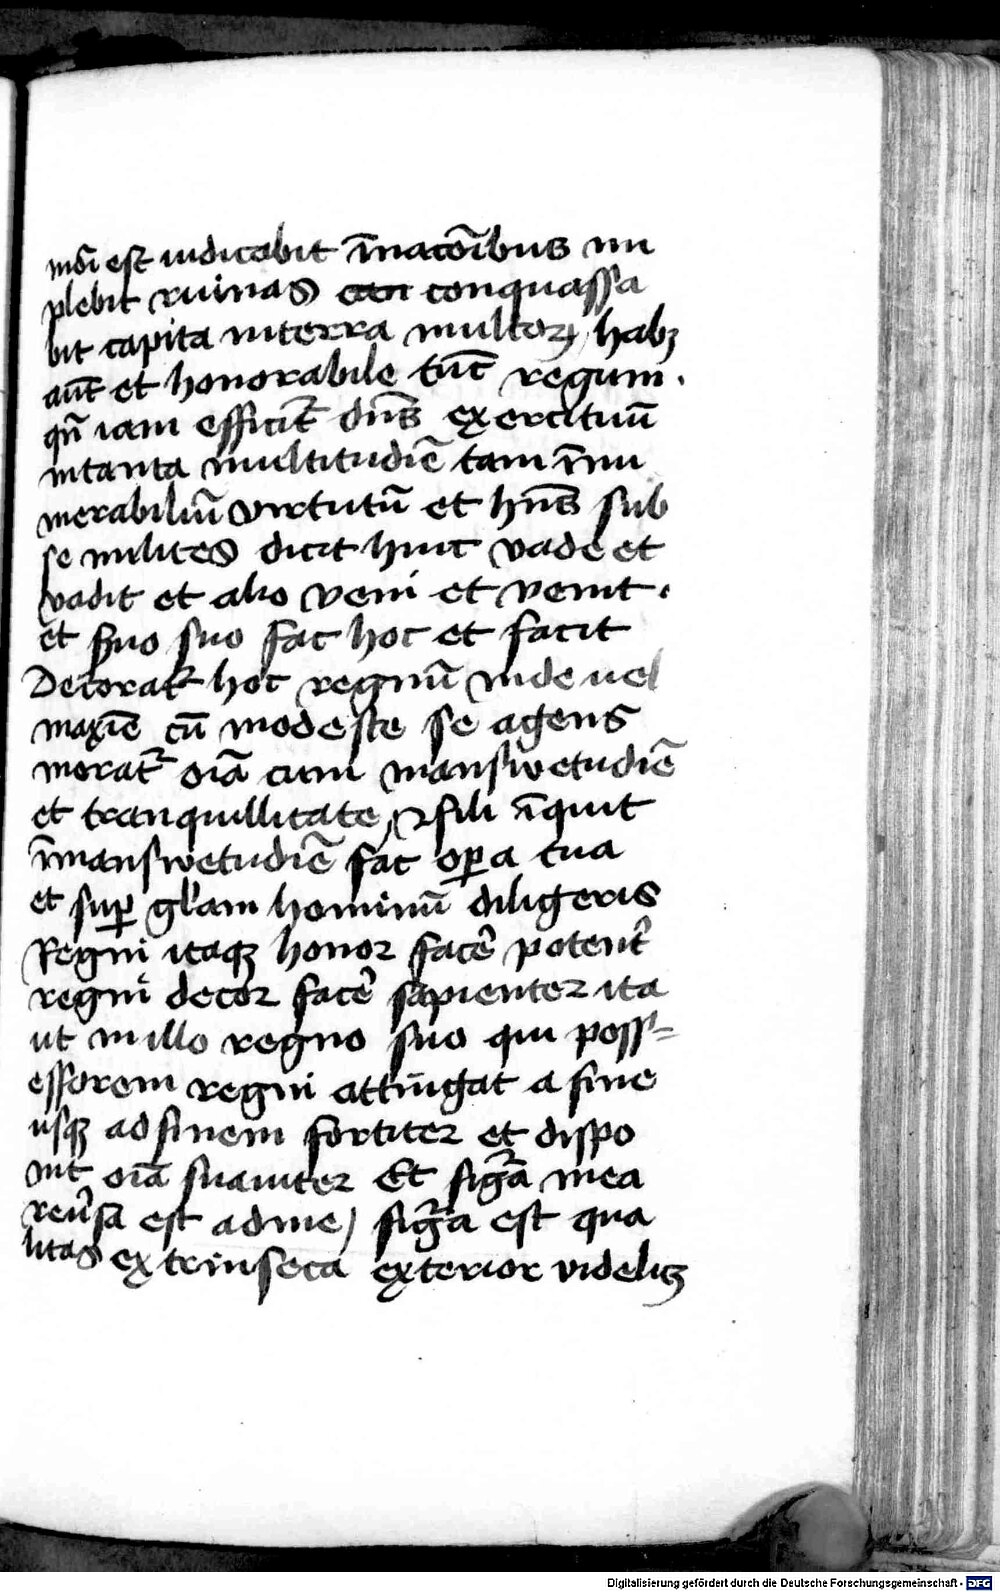 mdi est iudicabit ī nacōibus im
plebit ruinas conquassa
bit capita in terra multoꝝ habꝫ
aūt et honorabile tūc regnum.
qn̄ iam efficit᷑ dn̄s exercituū
in tanta multitudīe tam īnu
merabiliū virtutū et hn̄s sub
se milites dicit huic vade et
vadit et alio veni et venit.
et ẜuo suo fac hoc et facit
Decorat᷑ hoc regnū inde uel
maxīe cū modeste se agens
morat᷑ oīa cum manswetudīe
et tranquillitate, fili īquit
ī manswetudīe fac oꝑa tua
et suꝑ gl'am hominū diligeris
Regni itaqꝫ honor facē potent᷑
regni decor facē sapienter ita
ut in illo regno suo qui poss=
essorem regni attingat a fine
usqꝫ ad finem fortiter et dispo
nit oīa suauiter Et figᷓa mea
reu᷑sa est ad me) figᷓa est qua
litas extrinseca exterior videlicꝫ
Digitalisierung gefördert durch die Deutsche Forschungsgemeinschaft - DFG